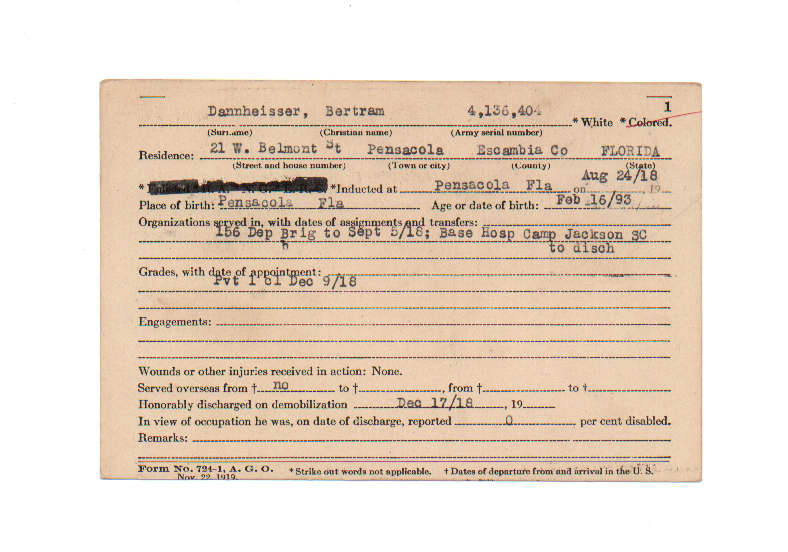 1
Dannheisser, Bertram 4,136,404 * White * Colored.
(Surname) (Christian name) (Army serial number)
21 W. Belmont St Pensacola Escambia Co FLORIDA
Residence:
(Street and house number) (Town or city) (County) (State)
Aug 24/18
* *Inducted at Pensacola Fla on , 19
Place of birth: Pensacola Fla Age or date of birth: Feb 16/93
Organizations served in, with dates of assignments and transfers:
156 Dep Brig to Sept 5/18; Base Hosp Camp Jackson SC
to disch
Grades, with date of appointment:
Pvt 1 cl Dec 9/18
Engagements:
Wounds or other injuries received in action: None.
Served overseas from † no to †, from † to †
Honorably discharged on demobilization Dec 17/18, 19
In view of occupation he was, on date of discharge, reported 0 per cent disabled.
Remarks:
Form No. 724-1, A. G. O. * Strike out words not applicable. † Dates of departure from and arrival in the U. S.
Nov. 22, 1919.